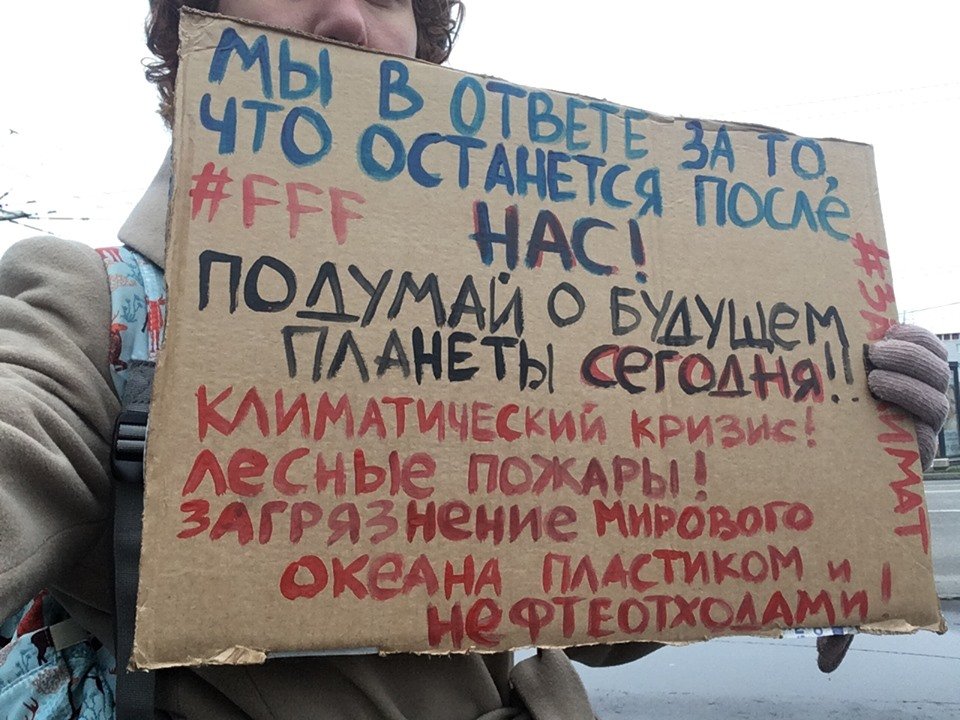 МЫ В ОТВЕТЕ ЗА ТО,
ЧТО ОСТАНЕТСЯ ПОСЛЕ
#FFF
НАС!
ПОДУМАЙ О БУДУЩЕМ
ПЛАНЕТЫ СЕГОДНЯ!!!
КЛИМАТИЧЕСКИЙ КРИЗИС!
ЛЕСНЫЕ ПОЖАРЫ!
ЗАГРЯЗНЕНИЕ МИРОВОГО
ОКЕАНА ПЛАСТИКОМ И
НЕФТЕОТХОДАМИ!